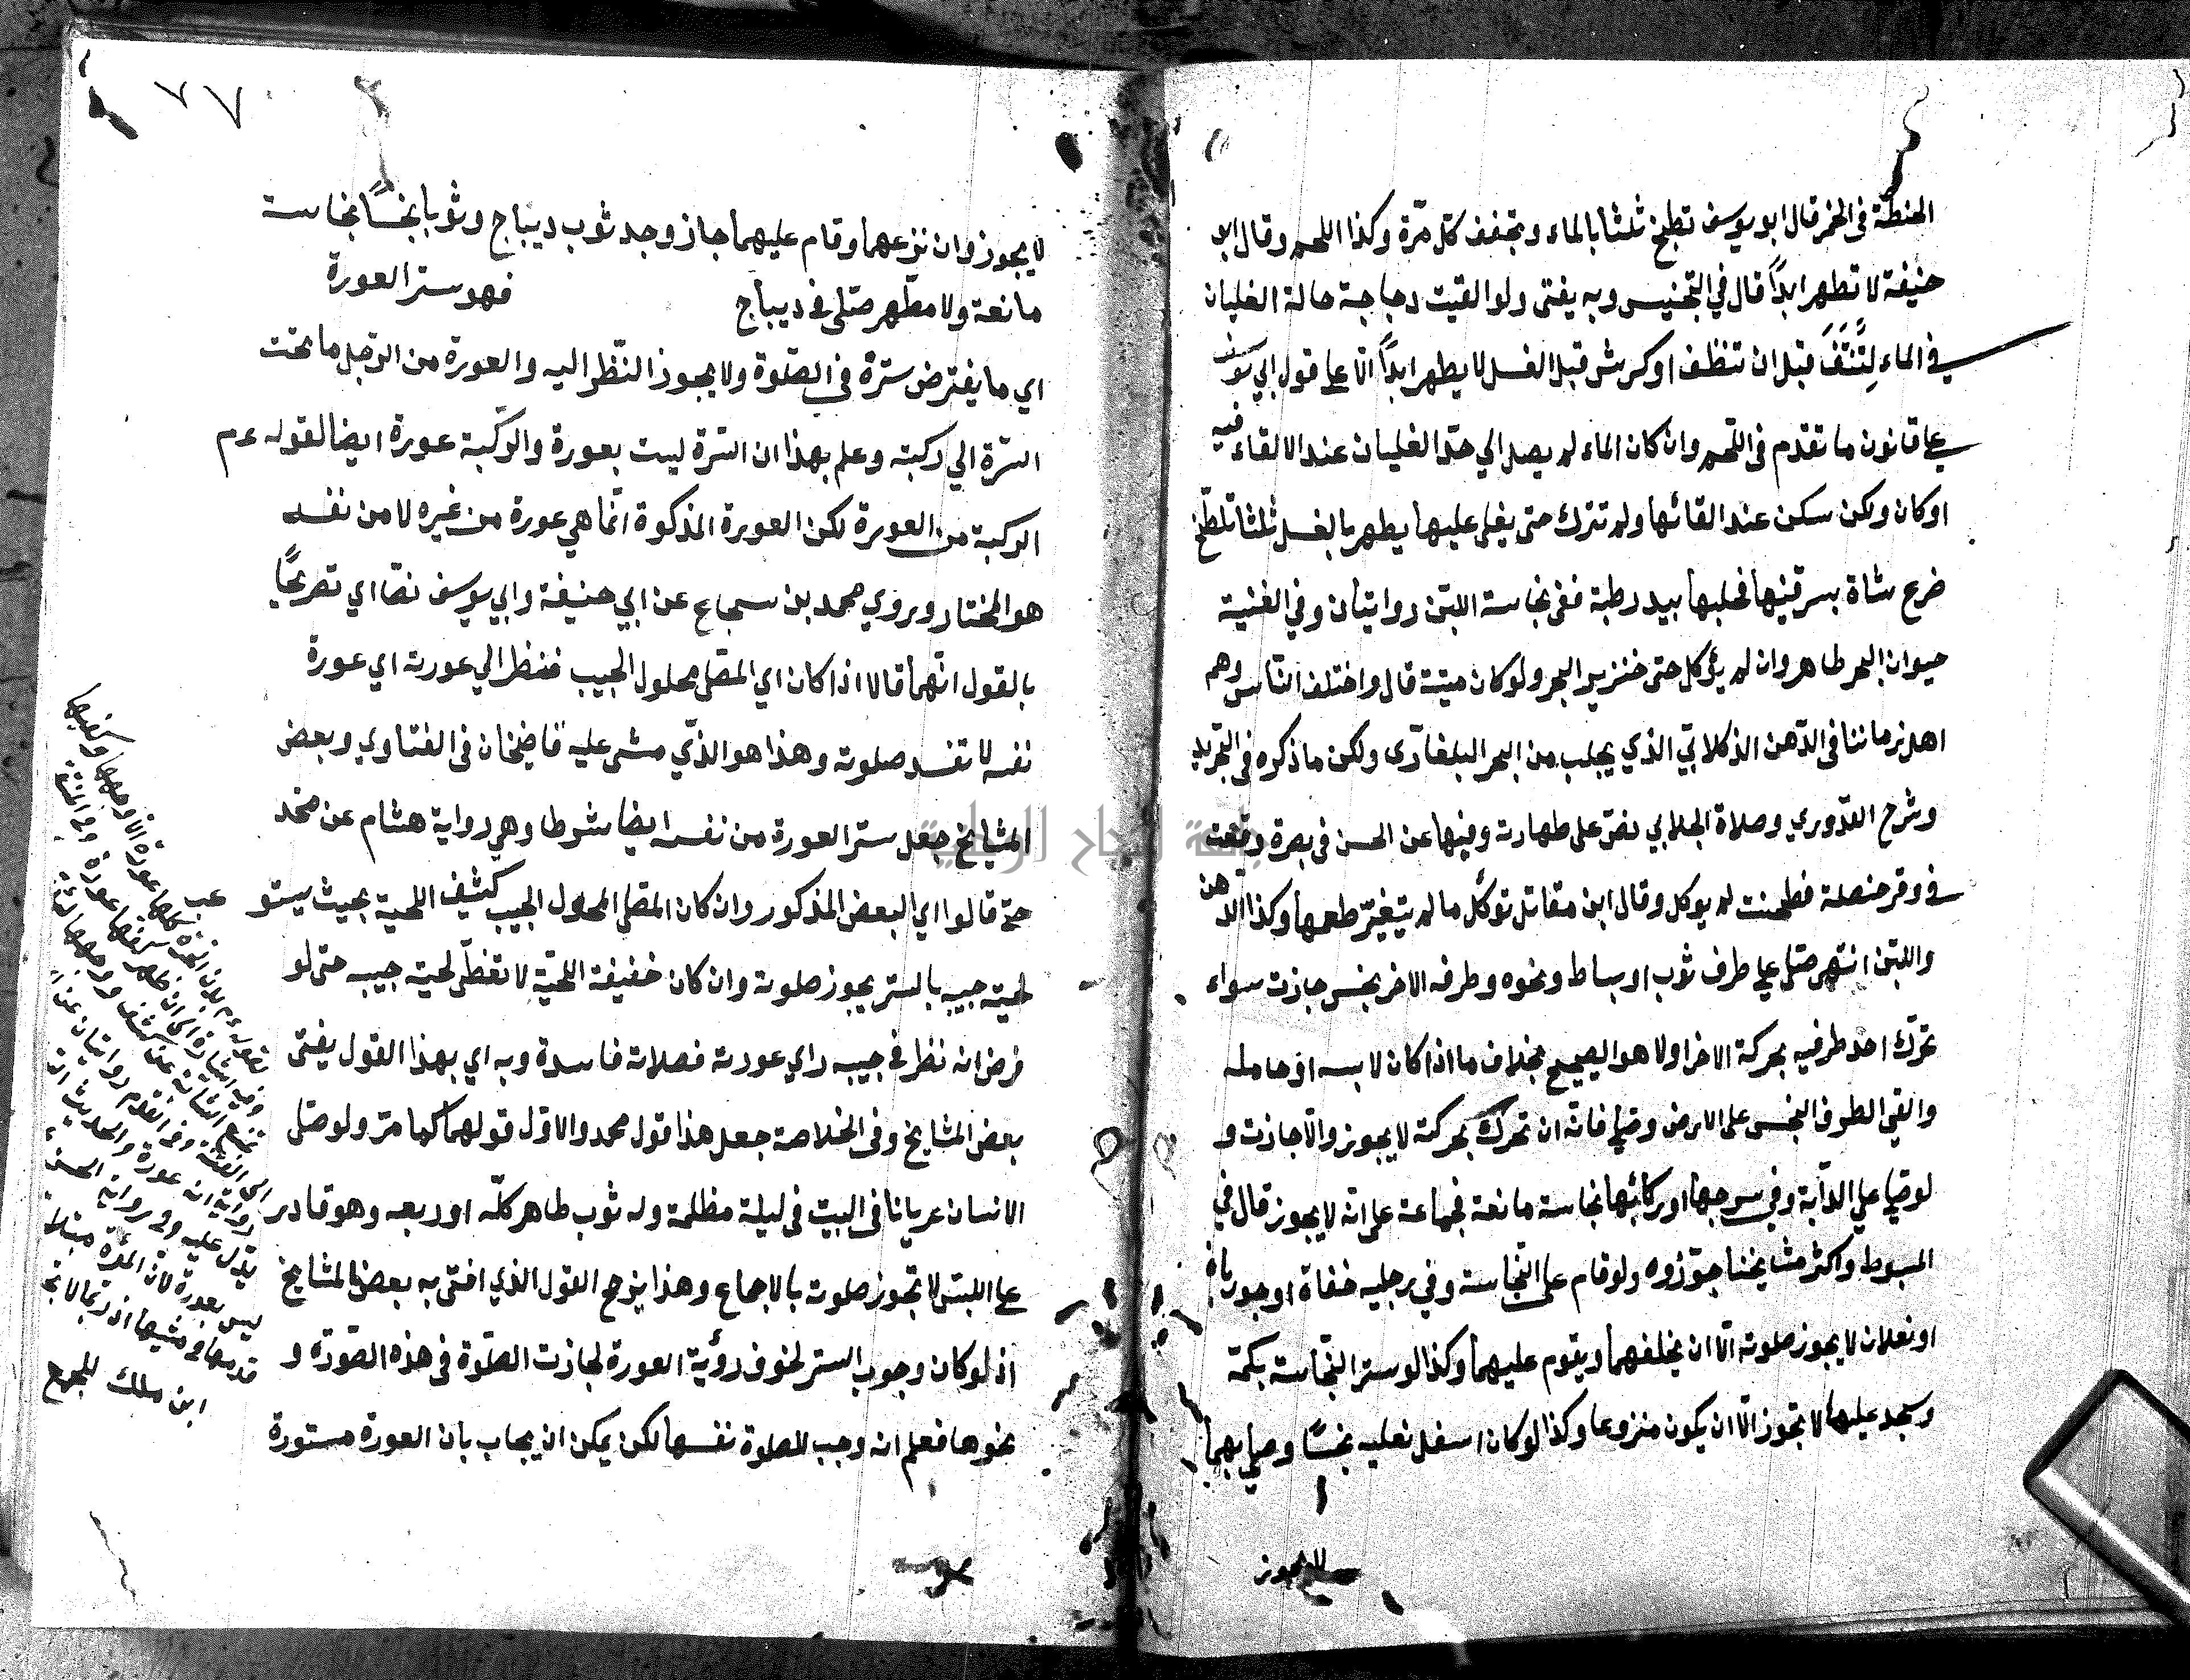 الحنطة في الخمر قال ابو يوسف تطبخ ثلثا بالماء وتجفف كل مرّة وكذا اللحم وقال ابو
حنيفة لا تطهر ابدًا قال في التجنيس وبه يفتى ولو القيت دجاجة حالة الغليان
في الماء لِتُنْتَفَ قبل ان تنظف او كرش قبل الغسل لا يطهر ابدًا الّا على قول ابي يوسف
على قانون ما تقدم في اللّحم وان كان الماء لم يصل الي حدّ الغليان عند الالقاء فيه
او كان ولكن سكن عند القائها ولم تترك حتى يغلى عليها يطهر بالغسل ثلثا تلطّخ
ضرع شاة بسرقينها فحلبها بيد رطبة ففي نجاسة اللبن روايتان وفي الغنية
حيوان البحر طاهر وان لم يؤكل حتى خنزير البحر ولو كان ميتة قال واختلف النّاس وهم
اهل زماننا في الدّهن الذكلابيّ الذي يجلب من البحر البلغارى ولكن ما ذكره في التجريد
وشرح القدّوري وصلاة الجلابي نصّ على طهارته وفيها عن الحسن في بعرة وقعت
في وقر حنطة فطحنت لم يوكل وقال ابن مقاتل توكل ما لم يتغيّر طعمها وكذا الدّهن
واللبن انتهى صلى على طرف ثوب او بساط ونحوه وطرفه الاخر نجس جازت سواء
تحرّك احد طرفيه بحركة الاخر اولا هو الصحيح بخلاف ما اذا كان لابسه او حامله
والقي الطرف النجس على الارض وصلي فانّه ان تحرّك بحركته لا يجوز والّا جازت و
لو صلي علي الدّابة وفي سرجها او ركابها نجاسة مانعة فجماعة على انّه لا يجوز قال في
المبسوط واكثر مشايخنا جوّزوه ولو قام على النّجاسة وفي رجليه خفاة او جورباة
او نعلان لا يجوز صلوته الّا ان يخلفهما ويقوم عليهما وكذا لو ستر النّجاسة بكمّه
وسجد عليها لا تجوز الّا ان يكون منزوعا وكذا لو كان اسفل نعليه نجسًا وصلي بهما
لا يجوز
٧٧
لا يجوز وان نزعهما وقام عليهما جاز وجد ثوب ديباج وثوبا نجسًا نجاسة
مانعة ولا مطّهر صلّى في ديباج فهو ستر العورة
اي ما يفترض ستره في الصّلوة ولا يجوز النّظر اليه والعورة من الرّجل ما تحت
السّرة الي ركبته وعلم بهذا ان السّرة ليست بعورة والركبة عورة ايضا لقوله عم
الركبة من العورة لكن العورة المذكوة انّما هي عورة من غيره لا من نفسه
هو المختار وبروي محمد بن سجاع عن ابي حنيفة وابي يوسف نصّا اي تصريحًا
بالقول انّهما قالا اذا كان اي المصّلى محلول الجيب فنظر الي عورته اي عورة
نفسه لا تفسد صلوته وهذا هو الذّي مشى عليه قاضيخان في الفتاوي وبعض
المشايخ جعل ستر العورة من نفسه ايضا شوطا وهي رواية هشام عن محمد
حتى قالوا اي البعض المذكور وان كان المصّلى المحلول الجيب كثيف اللحية بحيث يستر
لحيته جيبه بالستر يجوز صلوته وان كان خفيفة اللحيّة لا تغطّى لحيته جيبه حتى لو
فرض انه نظر في جيبه راي عورته فصلاته فاسدة وبه اي بهذا القول يفتى
بعض المشايخ وفي الخلاصة جعل هذا قول محمد والاوّل قولهما كما مرّ ولو صلّى
الانسان عريانا في البيت في ليلة مظلمة وله ثوب طاهر كلّه او ربعه وهو قادر
على اللبس لا تجوز صلوته بالاجماع وهذا يرجح القول الذي افتى به بعض المشايخ
اذ لو كان وجوب الستر لخوف رؤية العورة لجازت الصّلوة في هذه الصّورة و
نحوها فعلم انه وجب للصلوة نفسها لكن يمكن ان يجاب بان العورة مستورة
ليس بعورة لانّ المرأة مبتلاة
ابن ملك للمجمع